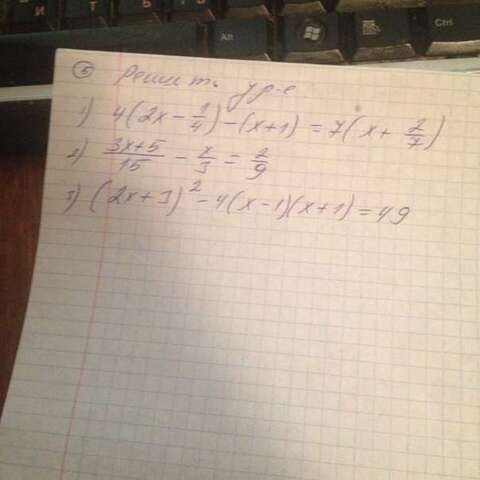 Alt
Ctrl
⑤ Решить ур-е
1) 4(2x - 1/4) - (x+1) = 7(x + 2/7)
2) (3x+5)/15 - x/3 = 2/9
3) (2x+3)² - 4(x-1)(x+1) = 49